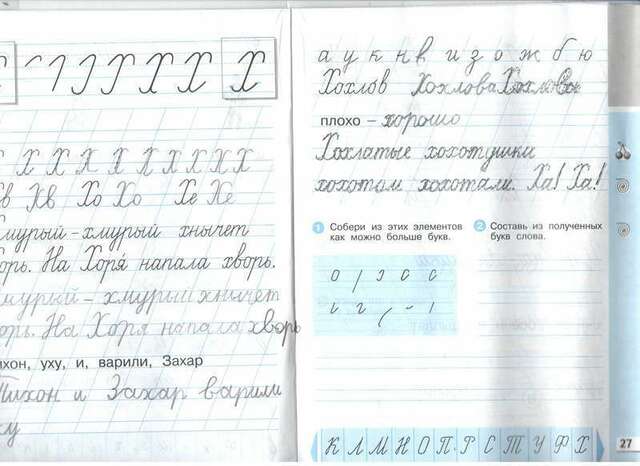 Х Х Х
Х Х Х Х Х Х Х Х Х
Хв Хо Хо Хе Хе
Хмурый-хмурый хнычет
На Хоря́ напала хворь.
хмурый хнычет
На Хоря напала хворь
уху, и, варили, Захар
Тихон и Захар варили
а у к н в и з о ж б ю
Хохлов Хохлова Хохловы
плохо – хорошо
Хохлатые хохотушки
хохотом хохотали. Ха! Ха!
1 Собери из этих элементов
как можно больше букв.
2 Составь из полученных
букв слова.
К Л М Н О П Р С Т У Ф Х
27